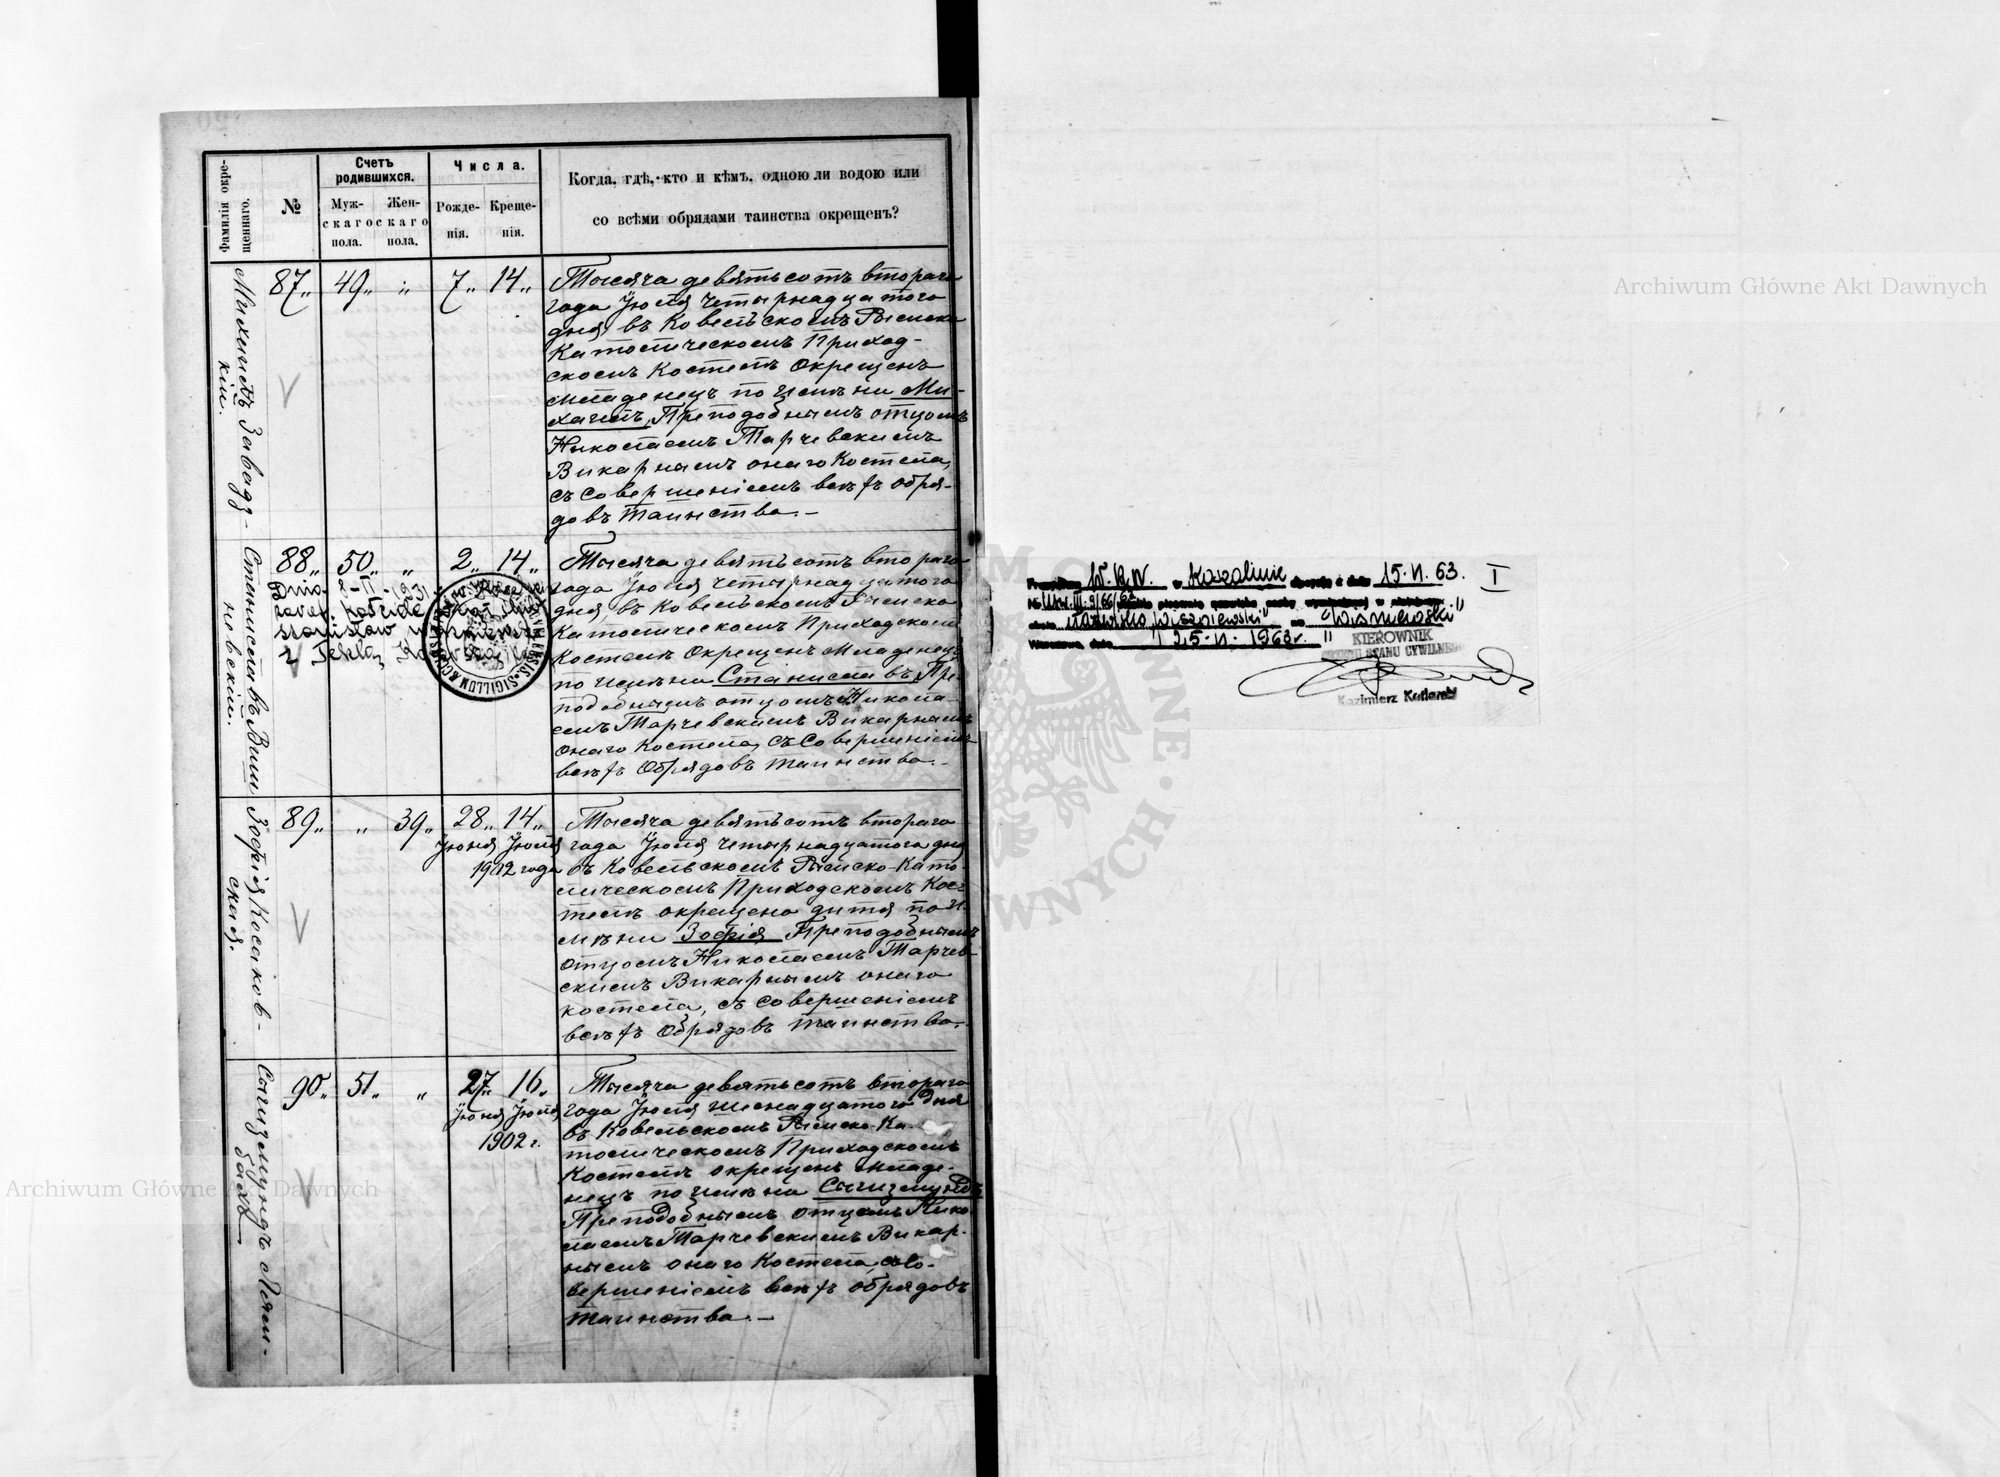 Фамилія окре-
щеннаго.
№
Счетъ
родившихся.
Муж-
скаго
пола.
Жен-
скаго
пола.
Числа.
Рожде-
нія.
Креще-
нія.
Когда, гдѣ, кто и кѣмъ, одною ли водою или
со всѣми обрядами таинства окрещенъ?
Михаилъ Завадз-
кій.
87 „ 49 „ „ 7 „ 14 „
Тысяча девятьсотъ втораго
года Іюля четырнадцатого
дня въ Ковельскомъ Римско
Католическомъ Приход-
скомъ Костелѣ окрещенъ
младенецъ по имени Ми-
хаилъ, Преподобнымъ отцомъ
Николаемъ Тарчевскимъ
Викарнымъ онаго Костела,
съ совершеніемъ всѣхъ обря-
довъ таинства. —
Станиславъ Виш-
невскій.
88 „ 50 „ „ 2 „ 14 „
Dnia 8-II-1931
Stanisław
z Teklą
SIGILLUM
Тысяча девятьсотъ втораго
года Іюля четырнадцатого
дня въ Ковельскомъ Римско
Католическомъ Приходскомъ
Костелѣ окрещенъ младенецъ
по имени Станиславъ, Пре-
подобнымъ отцомъ Никола-
емъ Тарчевскимъ Викарнымъ
онаго Костела, съ совершеніемъ
всѣхъ обрядовъ таинства. —
Зофія Косаков-
ская.
89 „ „ 39 „ 28 „ 14 „
Іюня Іюля
1902 года
Тысяча девятьсотъ втораго
года Іюля четырнадцатого дня
въ Ковельскомъ Римско-Като-
лическомъ Приходскомъ Кос-
телѣ окрещено дитя по и-
мени Зофія Преподобнымъ
отцомъ Николаемъ Тарчев-
скимъ Викарнымъ онаго
костела, съ совершеніемъ
всѣхъ обрядовъ таинства. —
Сигизмундъ
90 „ 51 „ „ 27 „ 16 „
Іюня Іюля
1902 г.
Тысяча девятьсотъ втораго
года Іюля шеснадцатого дня
въ Ковельскомъ Римско-Ка-
толическомъ Приходскомъ
Костелѣ окрещенъ младе-
нецъ по имени Сигизмундъ
Преподобнымъ отцомъ Нико-
лаемъ Тарчевскимъ Викар-
нымъ онаго Костела, съ со-
вершеніемъ всѣхъ обрядовъ
таинства. —
w Koszalinie 15.VI.63. I
nazwisko "Wiszniewski" na "Wiśniewski"
Warszawa, dnia 25.VI.1963r.
KIEROWNIK
URZĘDU STANU CYWILNEGO
Kazimierz
Archiwum Główne Akt Dawnych
Archiwum Główne Akt Dawnych